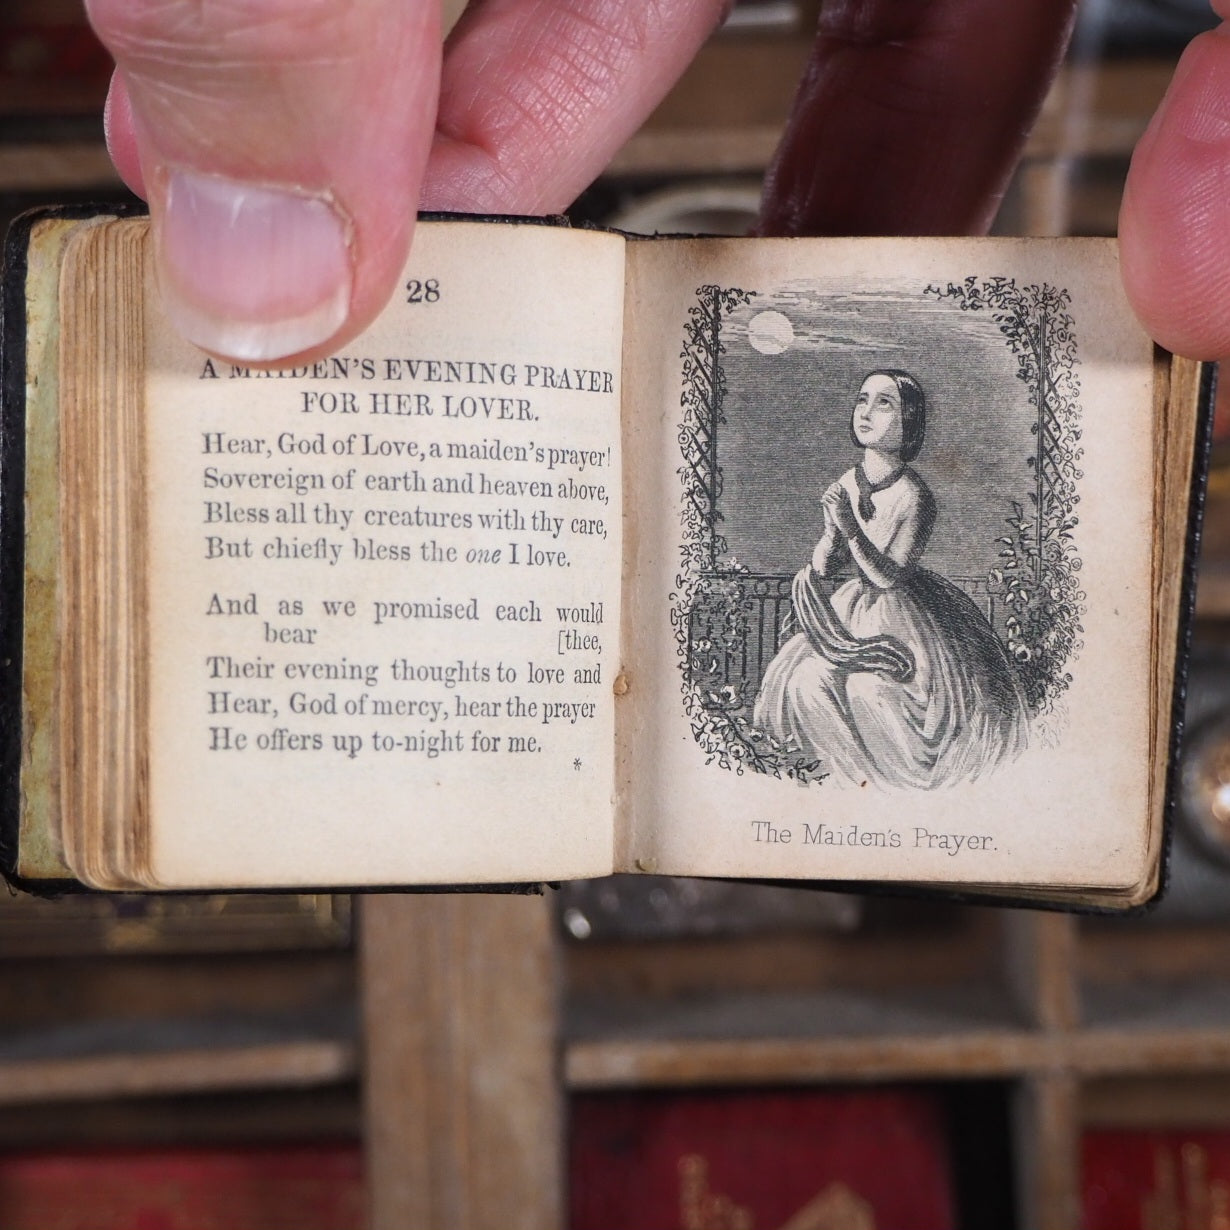 28
A MAIDEN'S EVENING PRAYER
FOR HER LOVER.
Hear, God of Love, a maiden's prayer!
Sovereign of earth and heaven above,
Bless all thy creatures with thy care,
But chiefly bless the one I love.
And as we promised each would
bear [thee,
Their evening thoughts to love and
Hear, God of mercy, hear the prayer
He offers up to-night for me.
*
The Maiden's Prayer.